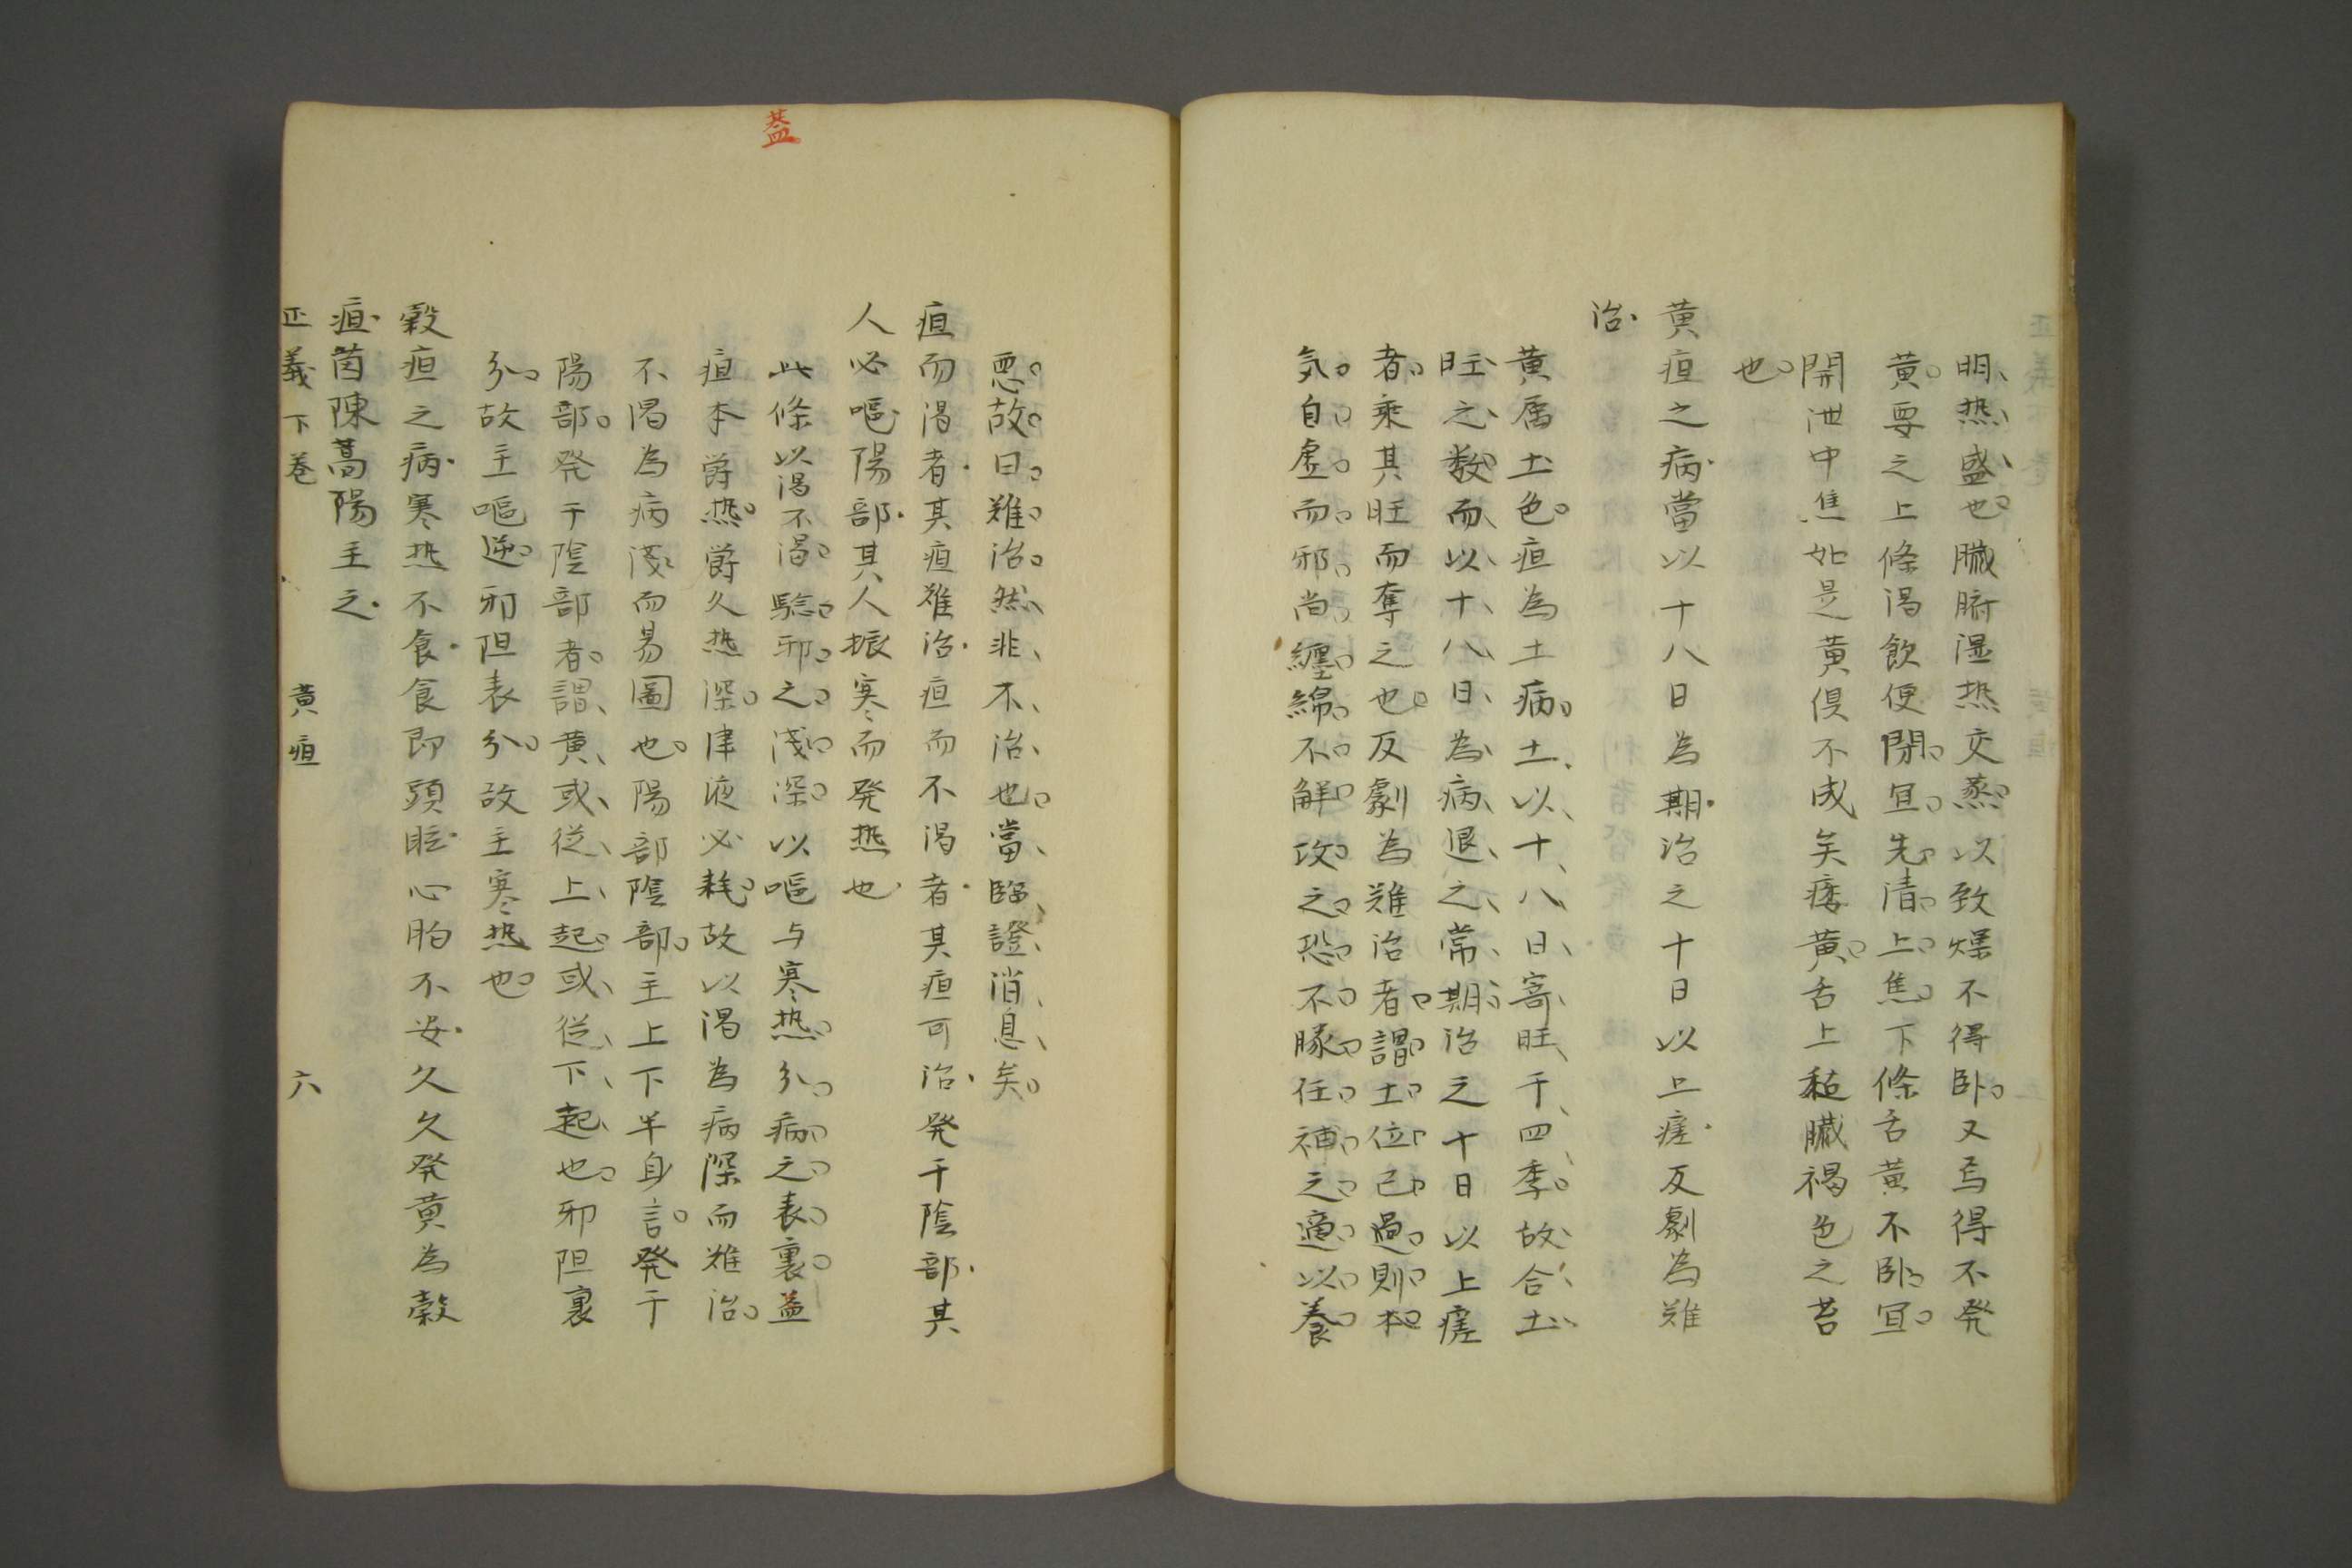 明、热、盛、也。臓腑湿热交蒸。以致燥不得卧。又焉得不発
黄。要之上條渇飲便閉。宜。先。清。上。焦。下條舌黄不卧。宜。
開泄中焦如是黄倶不成矣痿黄。舌上䵟臓褐色之苔
也。
黄疸之病．當以十八日為期．治之十日以上瘥．反劇為難
治．
黄属土色。疸為土病。土、以、十、八、日、寄、旺、于、四、季。故、合、土、
旺、之、数、而、以、十、八、日、為、病、退、之、常、期、治之十日以上瘥
者。乘其旺而奪之也。反劇為難治者。謂。土。位。已。過。則。本。
気。自。虚。而。邪。尚。纏。綿。不。解。攻。之。恐。不。勝。任。補。之。適。以。養。
悪。故。曰。難。治。然、非、不、治、也。當、臨、證、消、息、矣。
疸而渇者．其疸難治．疸而不渇者．其疸可治．発于陰部．其
人必嘔．陽部．其人振寒而発热也．
此條以渇不渇。騐。邪。之。淺。深。以嘔与寒热。分。病。之。表。裏。益
疸本欝热。欝久热深。津液必耗。故以渇為病深而難治。
不渇為病淺而易圖也。陽部陰部。主上下半身言。発于
陽部。発于陰部者。謂、黄、或、従、上、起。或、従、下、起、也。邪阻裏
分。故主嘔逆。邪阻表分。故主寒热也。
穀疸之病．寒热不食．食即頭眩．心胸不安．久久発黄為穀
疸．茵陳蒿陽主之．
正義下巻　黄疸　六
葢